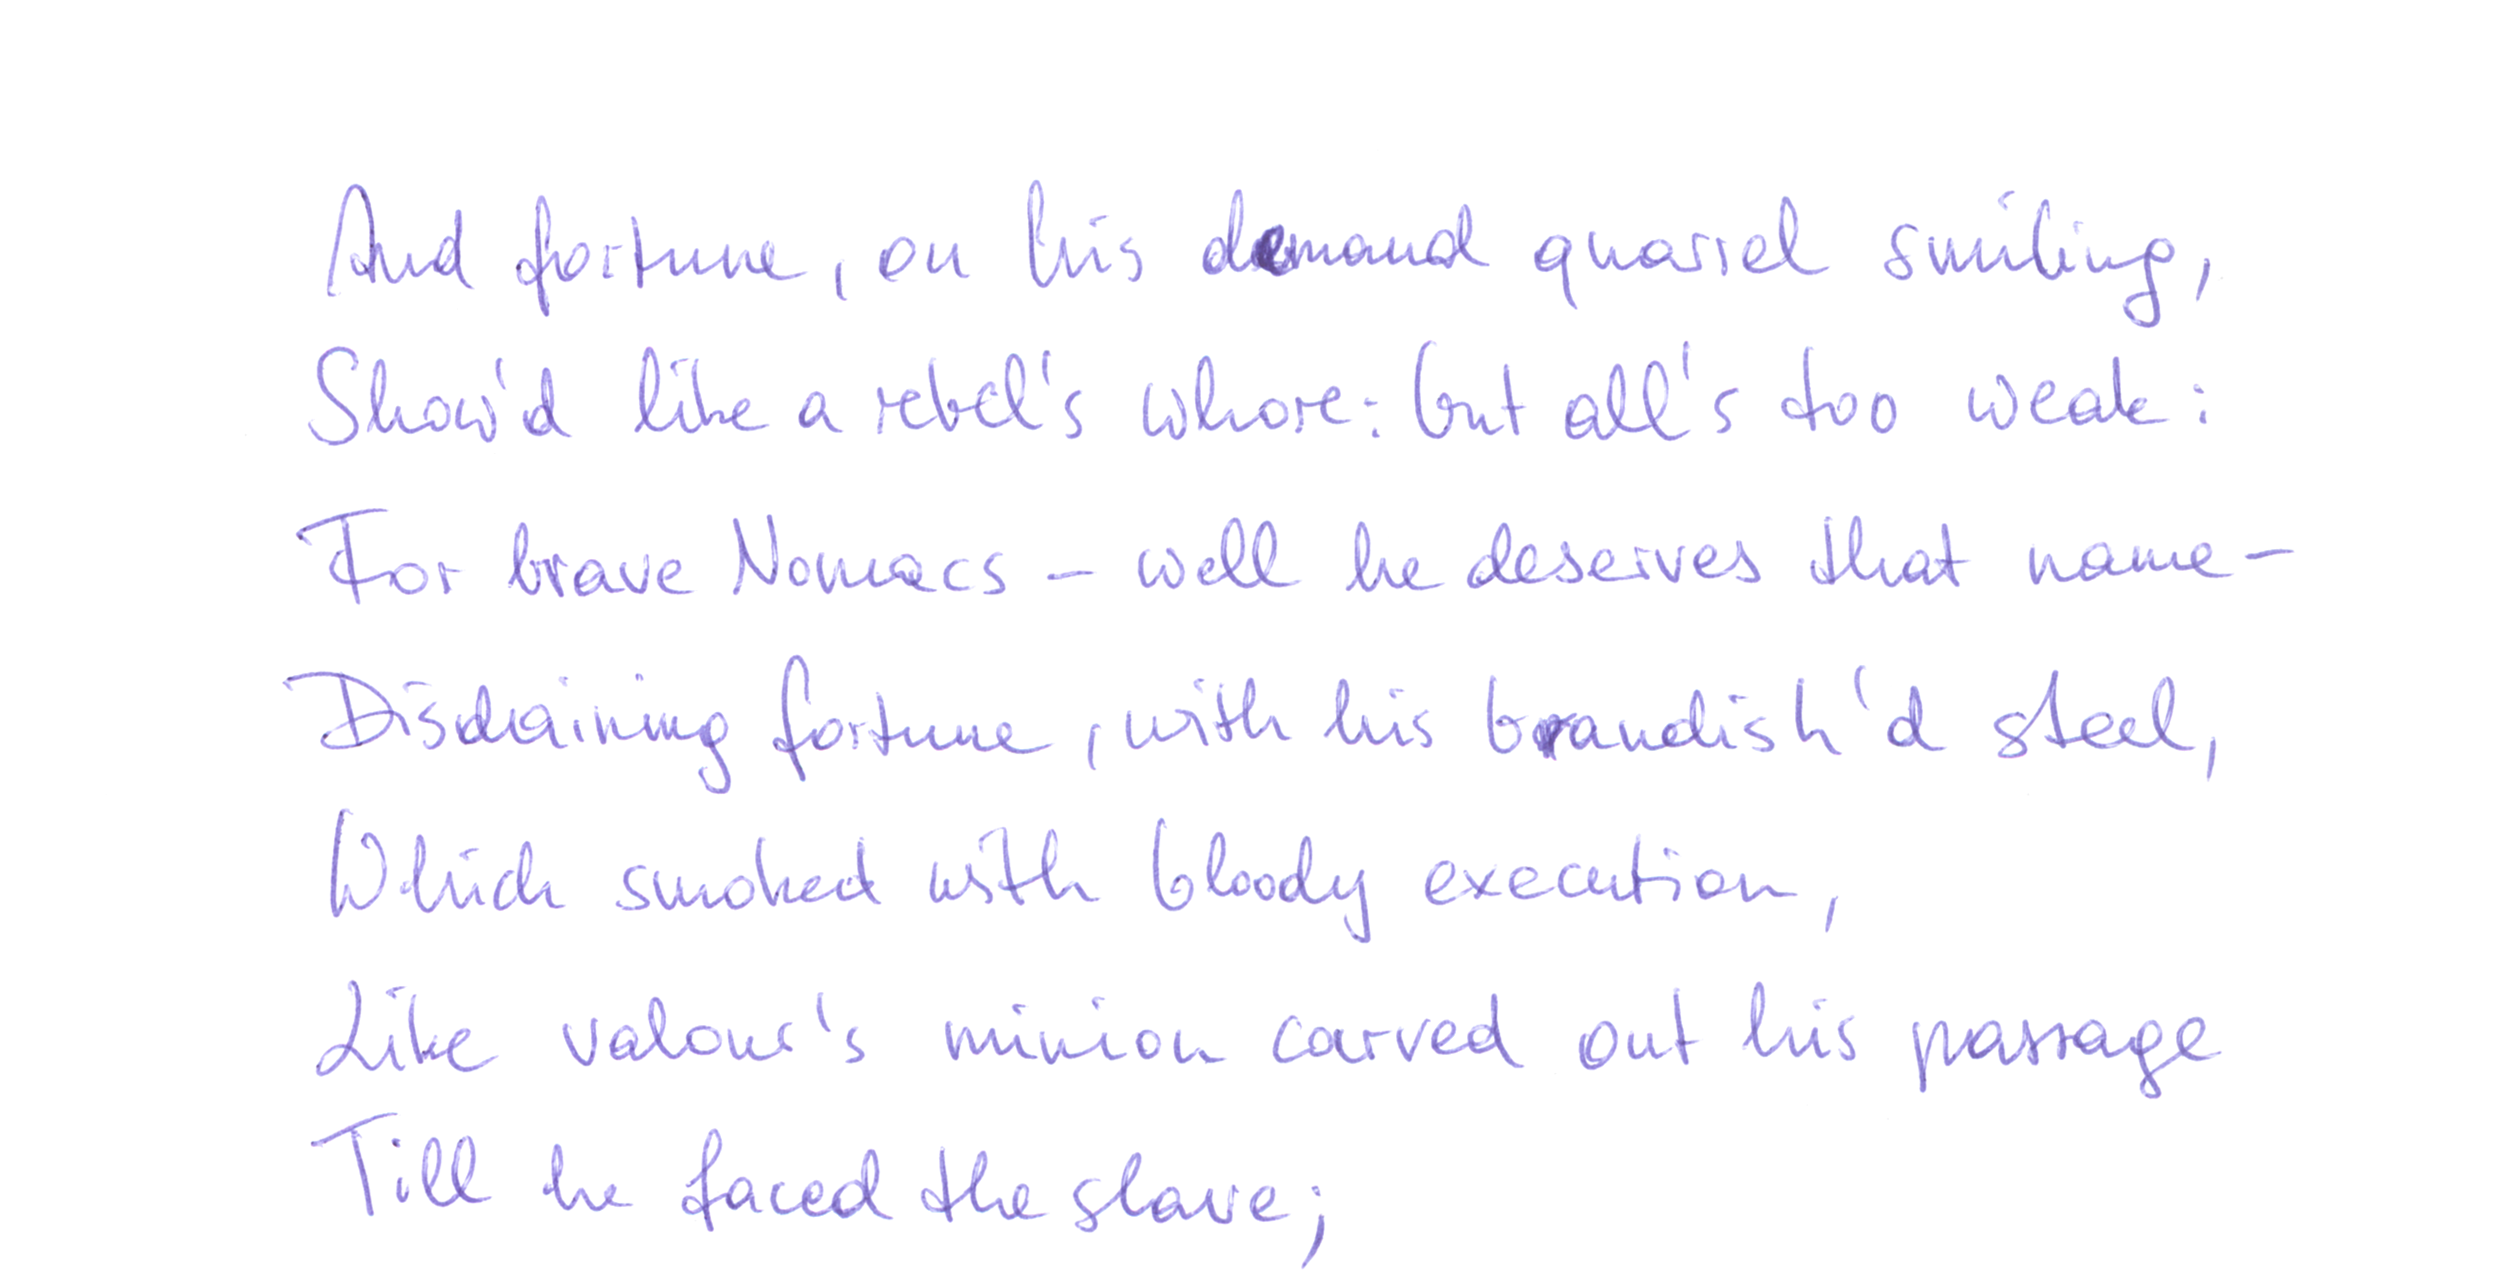 And fortune, on his demand quarrel smiling,
Show'd like a rebel's whore: but all's too weak:
For brave Nomacs - well he deserves that name -
Disdaining fortune, with his brandish'd steel,
Which smoked with bloody execution,
Like valour's minion carved out his passage
Till he faced the slave;